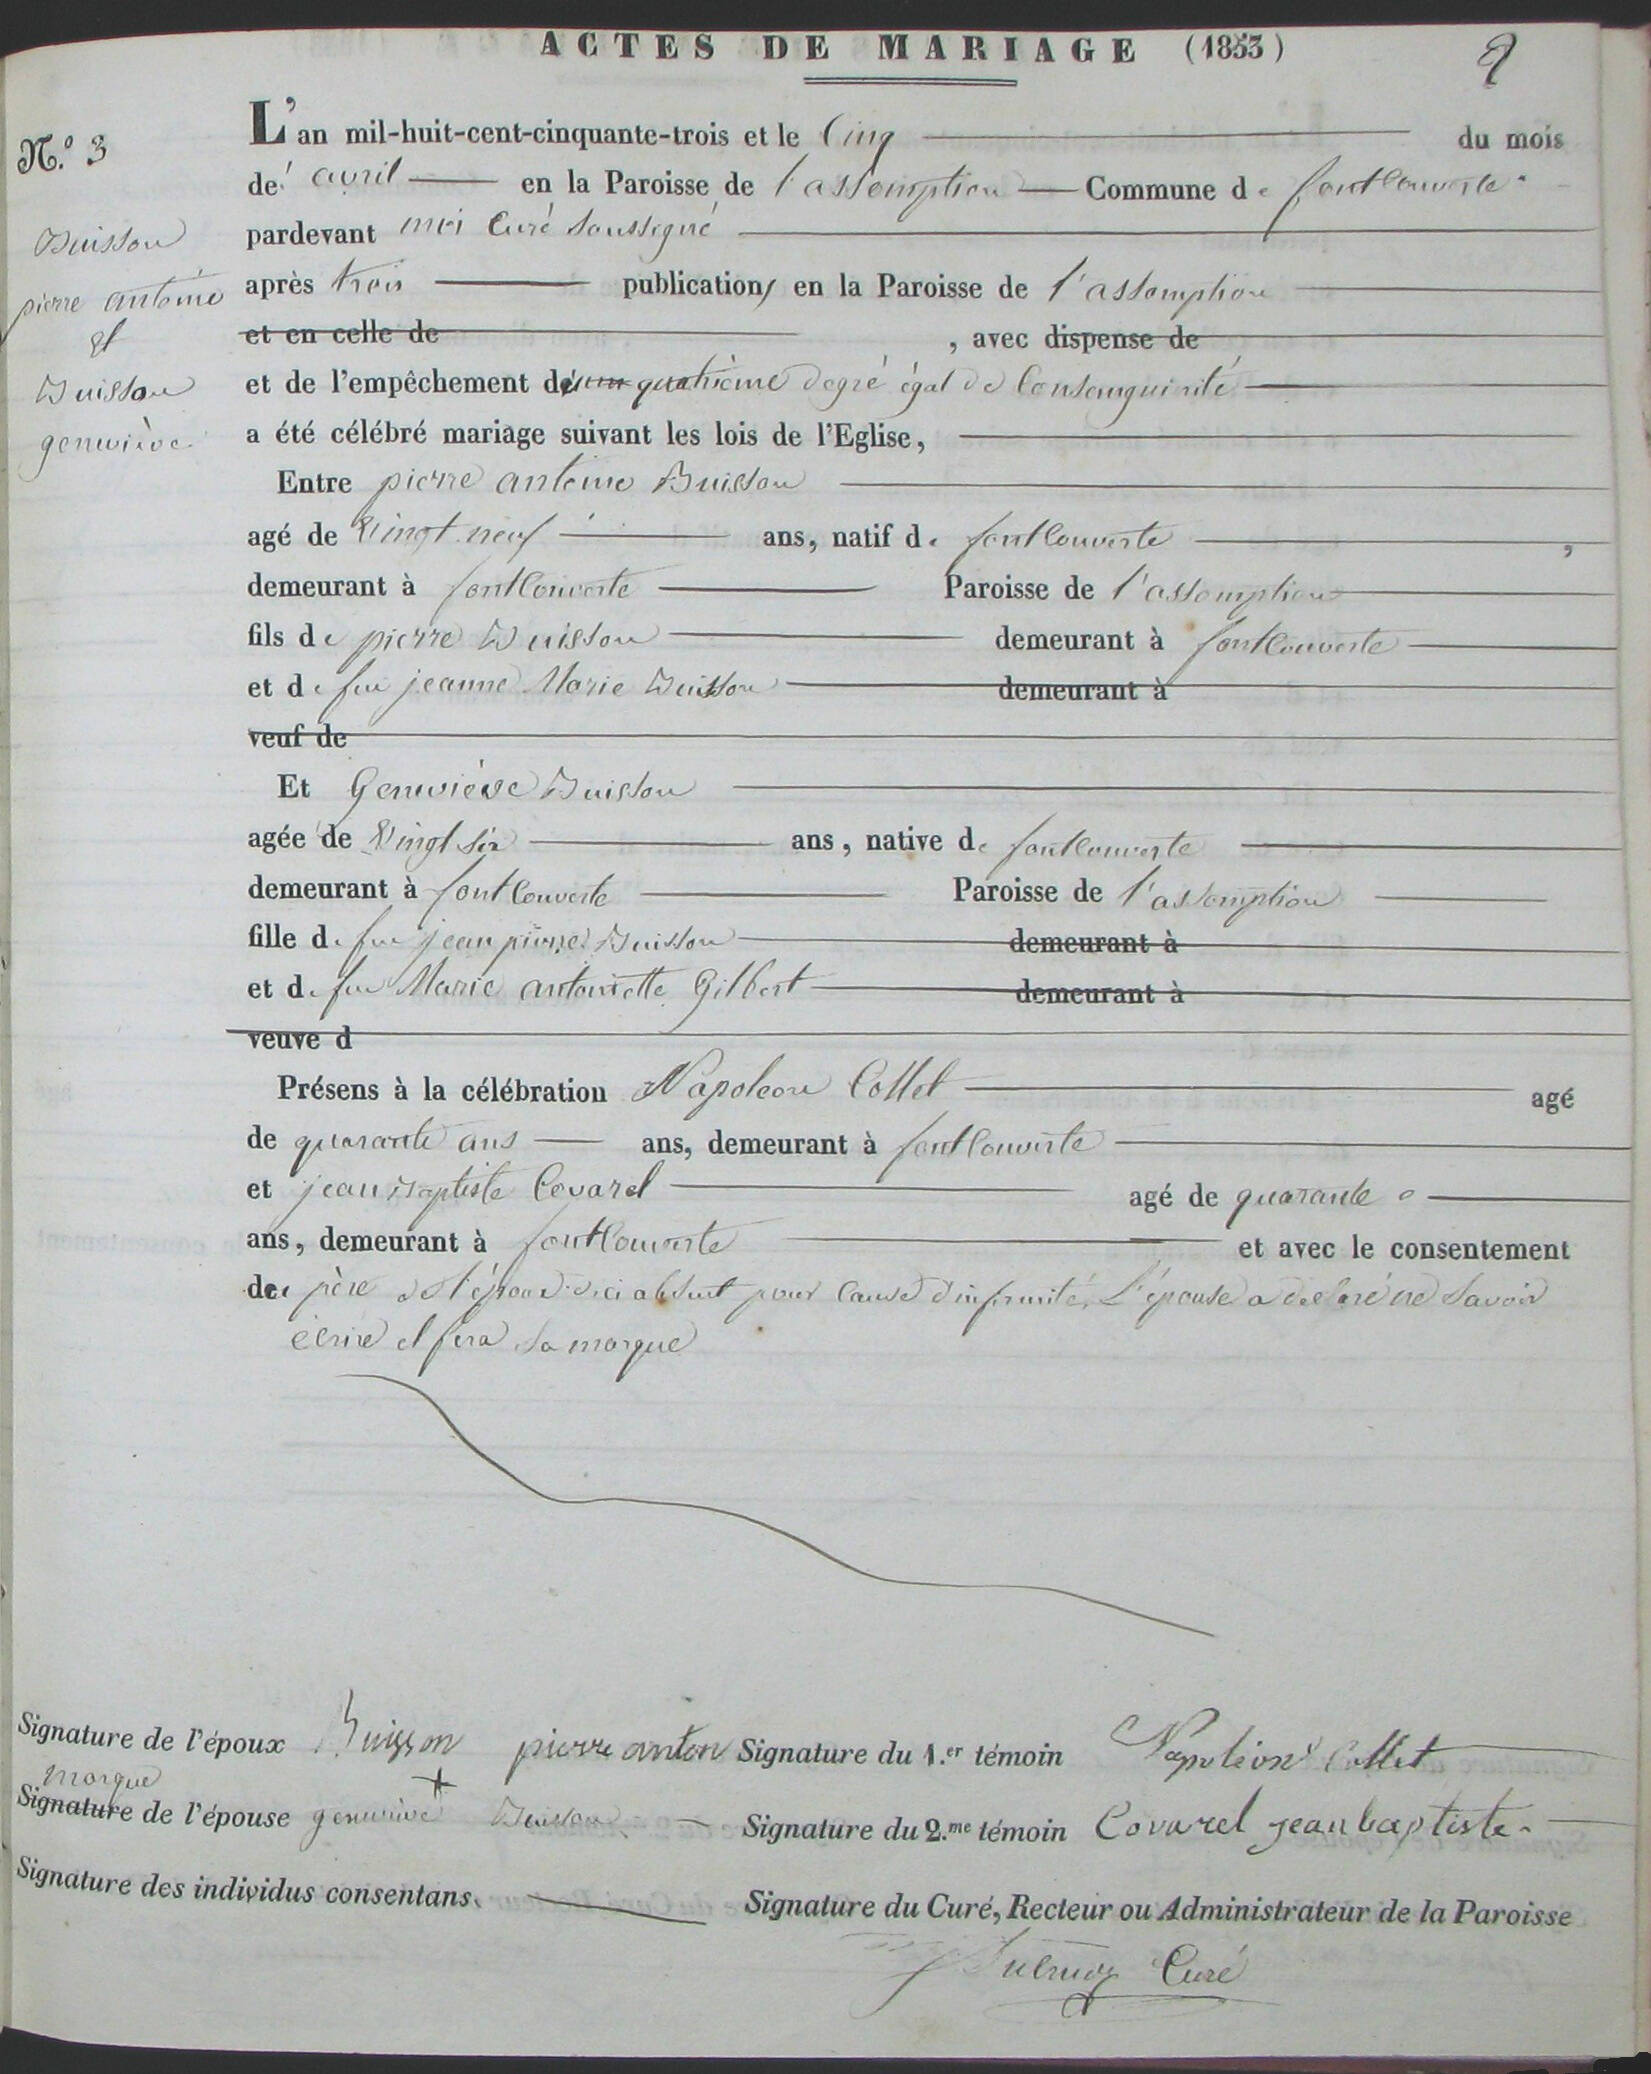 ACTES DE MARIAGE (1853)
2
N.º 3
Buisson
pierre antoine
et
Buisson
geneviève
L'an mil-huit-cent-cinquante-trois et le Cinq du mois
de avril en la Paroisse de l'assomption Commune de fontCouverte
pardevant moi Curé Soussigné
après trois publications en la Paroisse de l'assomption
et en celle de , avec dispense de
et de l'empêchement du quatrième degré égal de Consanguinité
a été célébré mariage suivant les lois de l'Eglise,
Entre pierre antoine Buisson
agé de Vingt neuf ans, natif de fontCouverte ,
demeurant à fontCouverte Paroisse de l'assomption
fils de pierre Buisson demeurant à fontCouverte
et de feu jeanne Marie Buisson demeurant à
veuf de
Et Geneviève Buisson
agée de Vingt six ans, native de fontCouverte
demeurant à fontCouverte Paroisse de l'assomption
fille de feu jean pierre Buisson demeurant à
et de feu Marie antoinette Gilbert demeurant à
veuve d
Présens à la célébration Napoleon Collet agé
de quarante ans ans, demeurant à fontCouverte
et jean Baptiste Covarel agé de quarante
ans, demeurant à fontCouverte et avec le consentement
de père de l'époux ici absent pour Cause d'infirmité, L'épouse a déclaré ne Savoir
écrire et fera Sa marque
Signature de l'époux Buisson pierre anton Signature du 1.er témoin Napoléon Collet
marque
Signature de l'épouse geneviève + Buisson Signature du 2.me témoin Covarel jean baptiste
Signature des individus consentans. Signature du Curé, Recteur ou Administrateur de la Paroisse
Curé